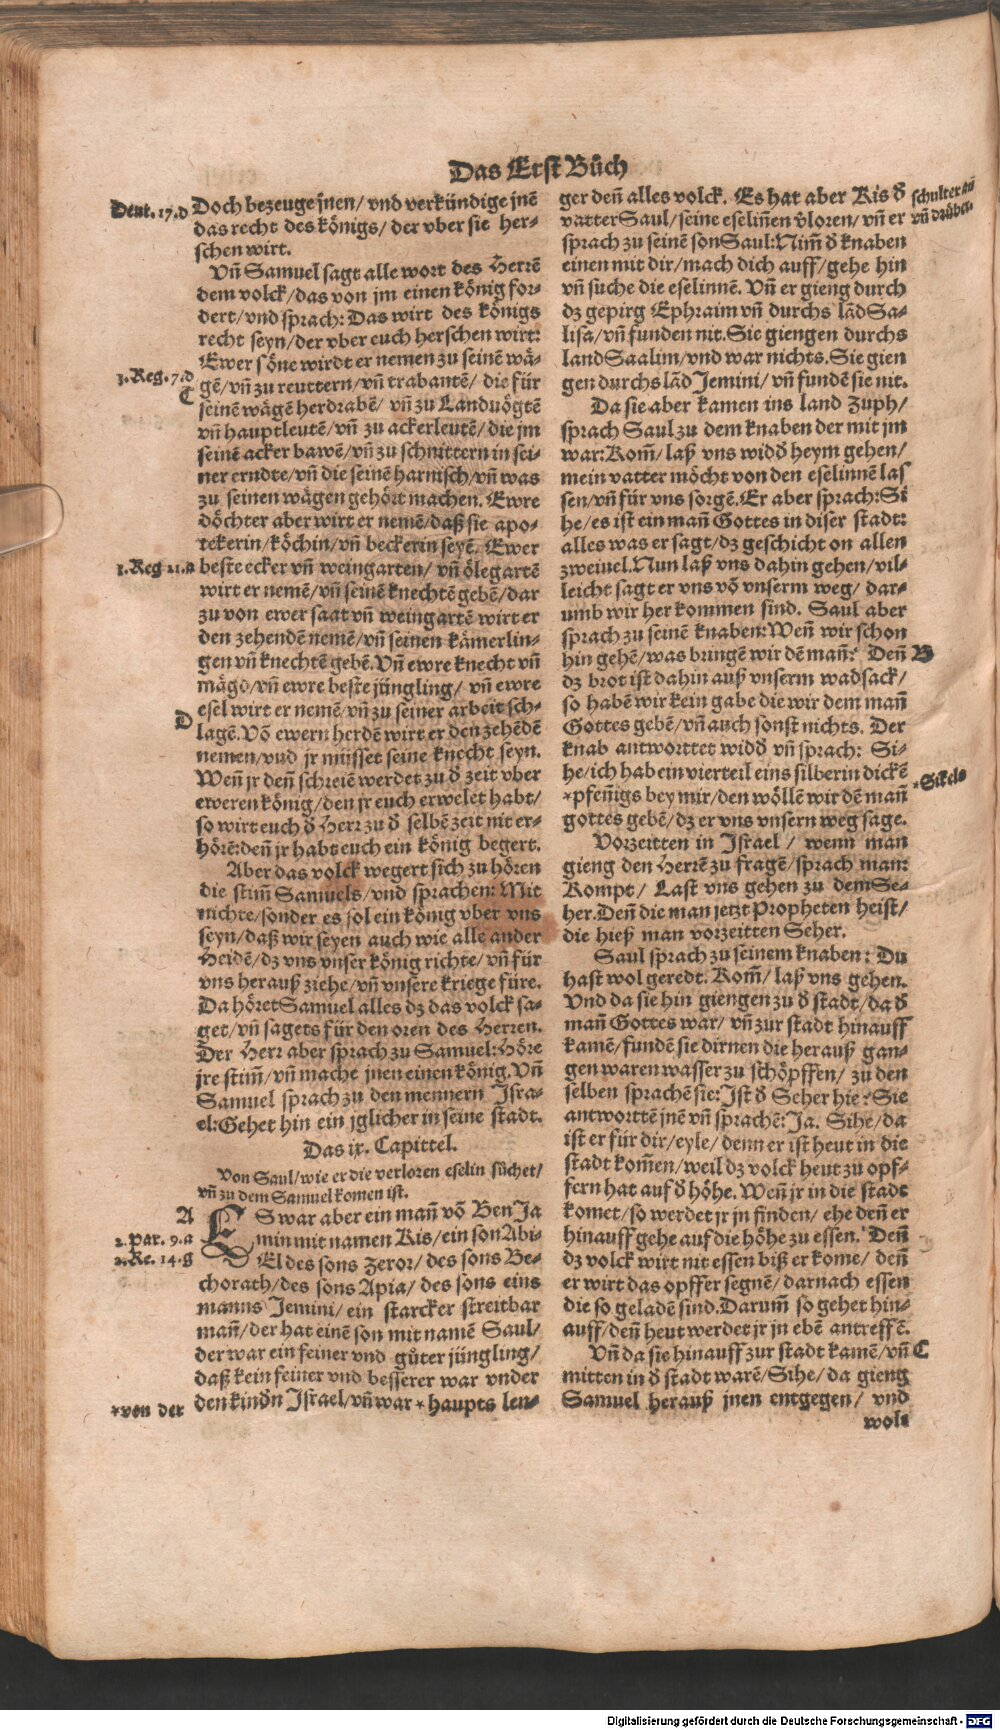 Das Erst Bůch
Deut. 17.d
Doch bezeuge jnen/ vnd verkündige jnē
das recht des königs/ der vber sie her-
schen wirt.
Vñ Samuel sagt alle wort des Herrē
dem volck/ das von jm einen könig for-
dert/ vnd sprach: Das wirt des königs
recht seyn/ der vber euch herschen wirt:
Ewer söne wirdt er nemen zu seinē wä-
3.Reg. 7.d
gē/ vñ zu reuttern/ vñ trabantē/ die für
C
seinē wägē herdrabē/ vñ zu Landuögtē
vñ hauptleutē/ vñ zu ackerleutē/ die jm
seinē acker bawē/ vñ zu schnittern in sei-
ner erndte/ vñ die seinē harnisch/ vñ was
zu seinen wägen gehört machen. Ewre
döchter aber wirt er nemē/ daß sie apo-
tekerin/ köchin/ vñ beckerin seyē. Ewer
3.Reg 21.a
beste ecker vñ weingarten/ vñ ölegartē
wirt er nemē/ vñ seinē knechtē gebē/ dar
zu von ewer saat vñ weingartē wirt er
den zehendē nemē/ vñ seinen kämerlin-
gen vñ knechtē gebē. Vñ ewre knecht vñ
mägd/ vñ ewre beste jüngling/ vñ ewre
D
esel wirt er nemē/ vñ zu seiner arbeit sch-
lagē. Vō ewern herdē wirt er den zehēdē
nemen/ vnd jr müsset seine knecht seyn.
Weñ jr deñ schreiē werdet zu d̄ zeit vber
eweren könig/ den jr euch erwelet habt/
so wirt euch d̄ Herr zu d̄ selbē zeit nit er-
hörē: deñ jr habt euch ein könig begert.
Aber das volck wegert sich zu hören
die stim̄ Samuels/ vnd sprachen: Mit
nichte/ sonder es sol ein könig vber vns
seyn/ daß wir seyen auch wie alle ander
Heidē/ dz vns vnser könig richte/ vñ für
vns herauß ziehe/ vñ vnsere kriege füre.
Da höret Samuel alles dz das volck sa-
get/ vñ sagets für den oren des Herren.
Der Herr aber sprach zu Samuel: Höre
jre stim̄/ vñ mache jnen einen könig. Vñ
Samuel sprach zu den mennern Isra-
el: Gehet hin ein jglicher in seine stadt.
Das ix. Capittel.
Von Saul/ wie er die verloren eselin sůchet/
vñ zu dem Samuel komen ist.
A
ES war aber ein mañ vō Ben Ja
2.Par. 9.a
min mit namen Kis/ ein son Abi-
2.Re. 14.g
El des sons Zeror/ des sons Be-
chorath/ des sons Apia/ des sons eins
manns Jemini/ ein starcker streitbar
mañ/ der hat einē son mit namē Saul/
der war ein feiner vnd gůter jüngling/
daß kein feiner vnd besserer war vnder
*von der
den kindn Israel/ vñ war * haupts len-
ger deñ alles volck. Es hat aber Kis d̄
schulter an
vñ drüben.
vatter Saul/ seine eseliñen v̄loren/ vñ er
sprach zu seinē son Saul: Nim̄ d̄ knaben
einen mit dir/ mach dich auff/ gehe hin
vñ suche die eselinnē. Vñ er gieng durch
dz gepirg Ephraim vñ durchs lād Sa-
lisa/ vñ funden nit. Sie giengen durchs
land Saalim/ vnd war nichts. Sie gien
gen durchs lād Jemini/ vñ fundē sie nit.
Da sie aber kamen ins land Zuph/
sprach Saul zu dem knaben der mit jm
war: Kom̄/ laß vns widd̄ heym gehen/
mein vatter möcht von den eselinnē las
sen/ vñ für vns sorgē. Er aber sprach: Si
he/ es ist ein mañ Gottes in diser stadt:
alles was er sagt/ dz geschicht on allen
zweiuel. Nun laß vns dahin gehen/ vil-
leicht sagt er vns vō vnserm weg/ dar-
umb wir her kommen sind. Saul aber
sprach zu seinē knaben: Weñ wir schon
hin gehē/ was bringē wir dē mañ? Deñ
B
dz brot ist dahin auß vnserm wadsack/
so habē wir kein gabe die wir dem mañ
Gottes gebē/ vñ auch sonst nichts. Der
knab antworttet widd̄ vñ sprach: Si-
he/ ich hab ein vierteil eins silberin dickē
*Sikels
*pfeñigs bey mir/ den wöllē wir dē mañ
gottes gebē/ dz er vns vnsern weg sage.
Vorzeitten in Israel / wenn man
gieng den Herrē zu fragē/ sprach man:
Kompt/ Last vns gehen zu dem Se-
her. Deñ die man jetzt Propheten heist/
die hieß man vorzeitten Seher.
Saul sprach zu seinem knaben: Du
hast wol geredt. Kom̄/ laß vns gehen.
Vnd da sie hin giengen zu d̄ stadt/ da d̄
mañ Gottes war/ vñ zur stadt hinauff
kamē/ fundē sie dirnen die herauß gan-
gen waren wasser zu schöpffen/ zu den
selben sprachē sie: Ist d̄ Seher hie? Sie
antworttē jnē vñ sprachē: Ja. Sihe/ da
ist er für dir/ eyle/ denn er ist heut in die
stadt kom̄en/ weil dz volck heut zu opf-
fern hat auf d̄ höhe. Weñ jr in die stadt
komet/ so werdet jr jn finden/ ehe deñ er
hinauff gehe auf die höhe zu essen. Deñ
dz volck wirt nit essen biß er kome/ deñ
er wirt das opffer segnē/ darnach essen
die so geladē sind. Darum̄ so gehet hin-
auff/ deñ heut werdet jr jn ebē antreffē.
Vñ da sie hinauff zur stadt kamē/ vñ
C
mitten in d̄ stadt warē/ Sihe/ da gieng
Samuel herauß jnen entgegen/ vnd
wolt
Digitalisierung gefördert durch die Deutsche Forschungsgemeinschaft - DFG